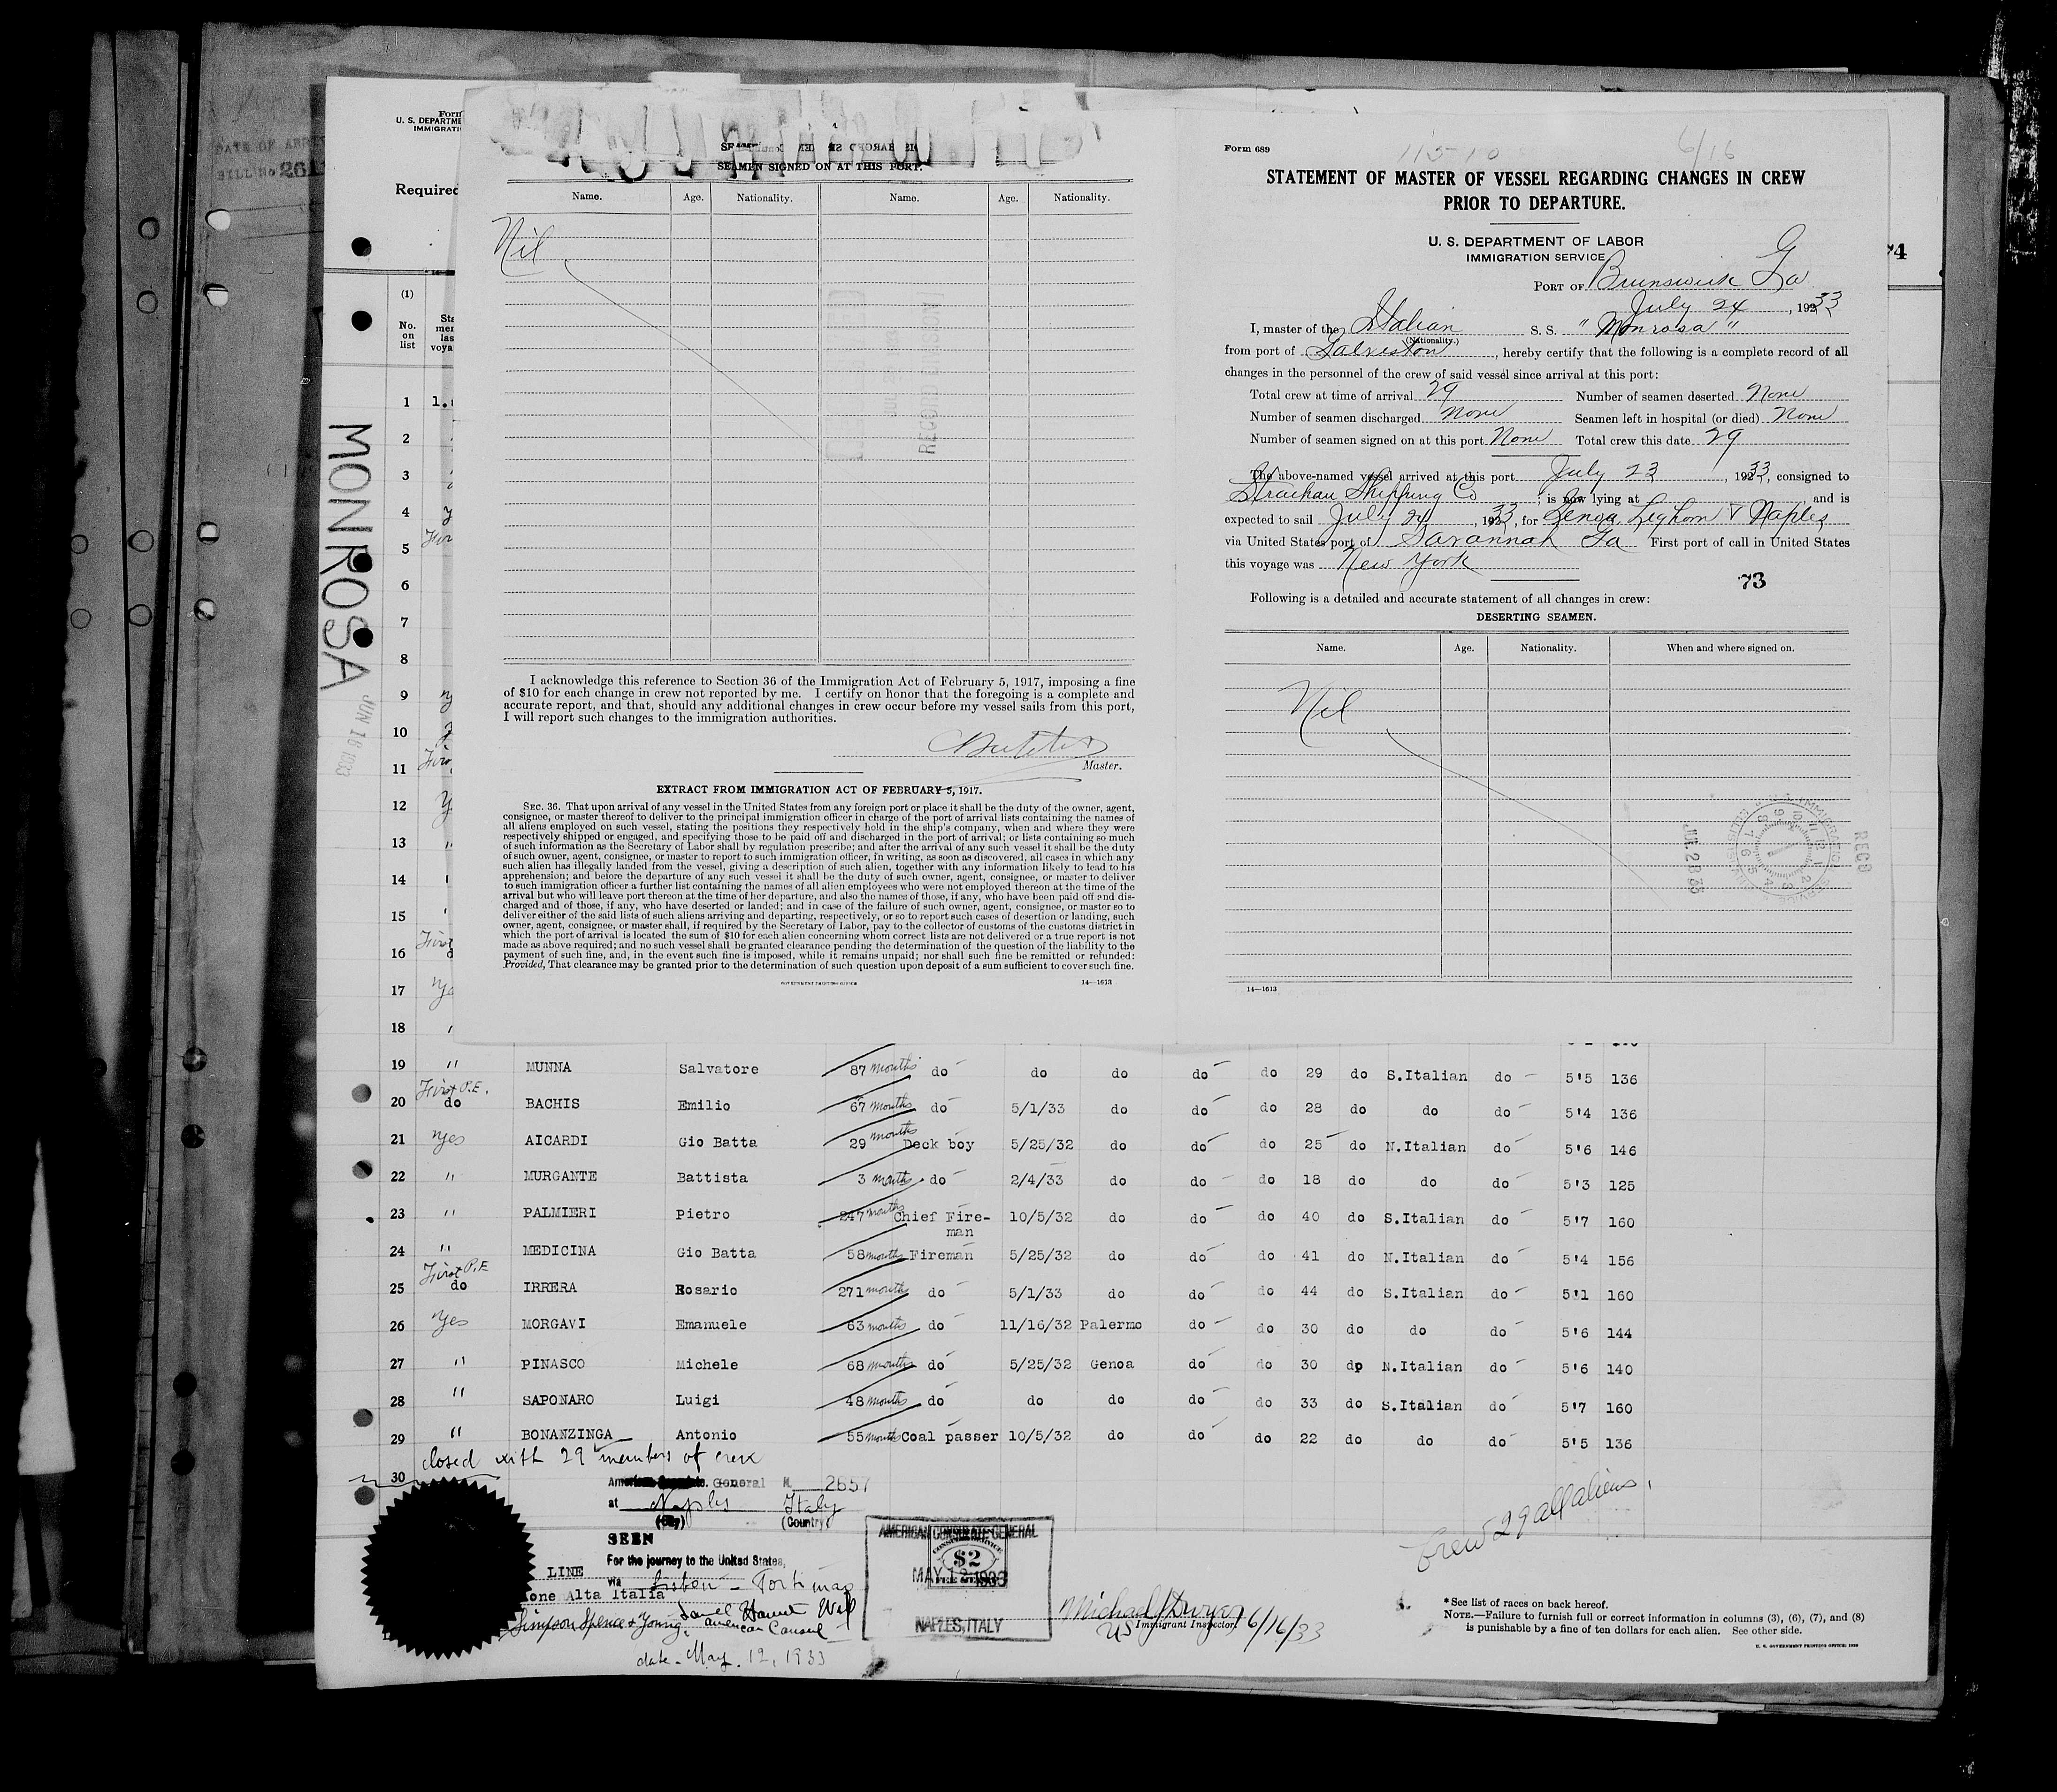 DATE OF ARRI
BILL No 261
Form
U. S. DEPARTME
IMMIGRATI
Required
(1)
No.
on
list
Sta
mer
las
voya
MONROSA
JUN 16 1933
1 1.
2
3
4
5
6
7
8
9
10
11
12
13
14
15
16
17
18
SEAMEN SIGNED ON AT THIS PORT.
Name. Age. Nationality. Name. Age. Nationality.
Nil
I acknowledge this reference to Section 36 of the Immigration Act of February 5, 1917, imposing a fine
of $10 for each change in crew not reported by me. I certify on honor that the foregoing is a complete and
accurate report, and that, should any additional changes in crew occur before my vessel sails from this port,
I will report such changes to the immigration authorities.
Master.
EXTRACT FROM IMMIGRATION ACT OF FEBRUARY 5, 1917.
SEC. 36. That upon arrival of any vessel in the United States from any foreign port or place it shall be the duty of the owner, agent,
consignee, or master thereof to deliver to the principal immigration officer in charge of the port of arrival lists containing the names of
all aliens employed on such vessel, stating the positions they respectively hold in the ship's company, when and where they were
respectively shipped or engaged, and specifying those to be paid off and discharged in the port of arrival; or lists containing so much
of such information as the Secretary of Labor shall by regulation prescribe; and after the arrival of any such vessel it shall be the duty
of such owner, agent, consignee, or master to report to such immigration officer, in writing, as soon as discovered, all cases in which any
such alien has illegally landed from the vessel, giving a description of such alien, together with any information likely to lead to his
apprehension; and before the departure of any such vessel it shall be the duty of such owner, agent, consignee, or master to deliver
to such immigration officer a further list containing the names of all alien employees who were not employed thereon at the time of the
arrival but who will leave port thereon at the time of her departure, and also the names of those, if any, who have been paid off and dis-
charged and of those, if any, who have deserted or landed; and in case of the failure of such owner, agent, consignee, or master so to
deliver either of the said lists of such aliens arriving and departing, respectively, or so to report such cases of desertion or landing, such
owner, agent, consignee, or master shall, if required by the Secretary of Labor, pay to the collector of customs of the customs district in
which the port of arrival is located the sum of $10 for each alien concerning whom correct lists are not delivered or a true report is not
made as above required; and no such vessel shall be granted clearance pending the determination of the question of the liability to the
payment of such fine, and, in the event such fine is imposed, while it remains unpaid; nor shall such fine be remitted or refunded:
Provided, That clearance may be granted prior to the determination of such question upon deposit of a sum sufficient to cover such fine.
GOVERNMENT PRINTING OFFICE 14—1613
Form 689
6/16
STATEMENT OF MASTER OF VESSEL REGARDING CHANGES IN CREW
PRIOR TO DEPARTURE.
U. S. DEPARTMENT OF LABOR
IMMIGRATION SERVICE
74
PORT OF Brunswick Ga
July 24, 1933
I, master of the Italian S. S. "Monrosa"
(Nationality.)
from port of Galveston, hereby certify that the following is a complete record of all
changes in the personnel of the crew of said vessel since arrival at this port:
Total crew at time of arrival 29 Number of seamen deserted None
Number of seamen discharged None Seamen left in hospital (or died) None
Number of seamen signed on at this port None Total crew this date 29
The above-named vessel arrived at this port July 23, 1933, consigned to
Strachan Shipping Co; is now lying at , and is
expected to sail July 24, 1933, for Genoa, Leghorn & Naples
via United States port of Savannah Ga First port of call in United States
this voyage was New York
73
Following is a detailed and accurate statement of all changes in crew:
DESERTING SEAMEN.
Name. Age. Nationality. When and where signed on.
Nil
RECD
14—1613
19 " MUNNA Salvatore 87 months do do do do do 29 do S.Italian do 5'5 136
First P.E.
20 do BACHIS Emilio 67 months do 5/1/33 do do do 28 do do do 5'4 136
21 Yes AICARDI Gio Batta 29 months Deck boy 5/25/32 do do do 25 do N.Italian do 5'6 146
22 " MURGANTE Battista 3 months do 2/4/33 do do do 18 do do do 5'3 125
23 " PALMIERI Pietro 247 months Chief Fire- 10/5/32 do do do 40 do S.Italian do 5'7 160
man
24 " MEDICINA Gio Batta 58 months Fireman 5/25/32 do do do 41 do N.Italian do 5'4 156
First P.E
25 do IRRERA Rosario 271 months do 5/1/33 do do do 44 do S.Italian do 5'1 160
26 Yes MORGAVI Emanuele 63 months do 11/16/32 Palermo do do 30 do do do 5'6 144
27 " PINASCO Michele 68 months do 5/25/32 Genoa do do 30 dp N.Italian do 5'6 140
28 " SAPONARO Luigi 48 months do do do do do 33 do S.Italian do 5'7 160
29 " BONANZINGA Antonio 55 months Coal passer 10/5/32 do do do 22 do do do 5'5 136
closed with 29 members of crew
30
General N. 2657
at Naples Italy
(City) (Country)
SEEN
For the journey to the United States,
via Lisbon - Portimao
LINE
one Alta Italia
Simpson Spence & Young.
American Consul
date - May. 12, 1933
AMERICAN CONSULATE GENERAL
CONSULAR SERVICE
$2
FEE STAMP
MAY 12 1933
NAPLES, ITALY
Michael Dwyer 6/16/33
US Immigrant Inspector.
Crew 29 all aliens.
* See list of races on back hereof.
NOTE.—Failure to furnish full or correct information in columns (3), (6), (7), and (8)
is punishable by a fine of ten dollars for each alien. See other side.
U. S. GOVERNMENT PRINTING OFFICE: